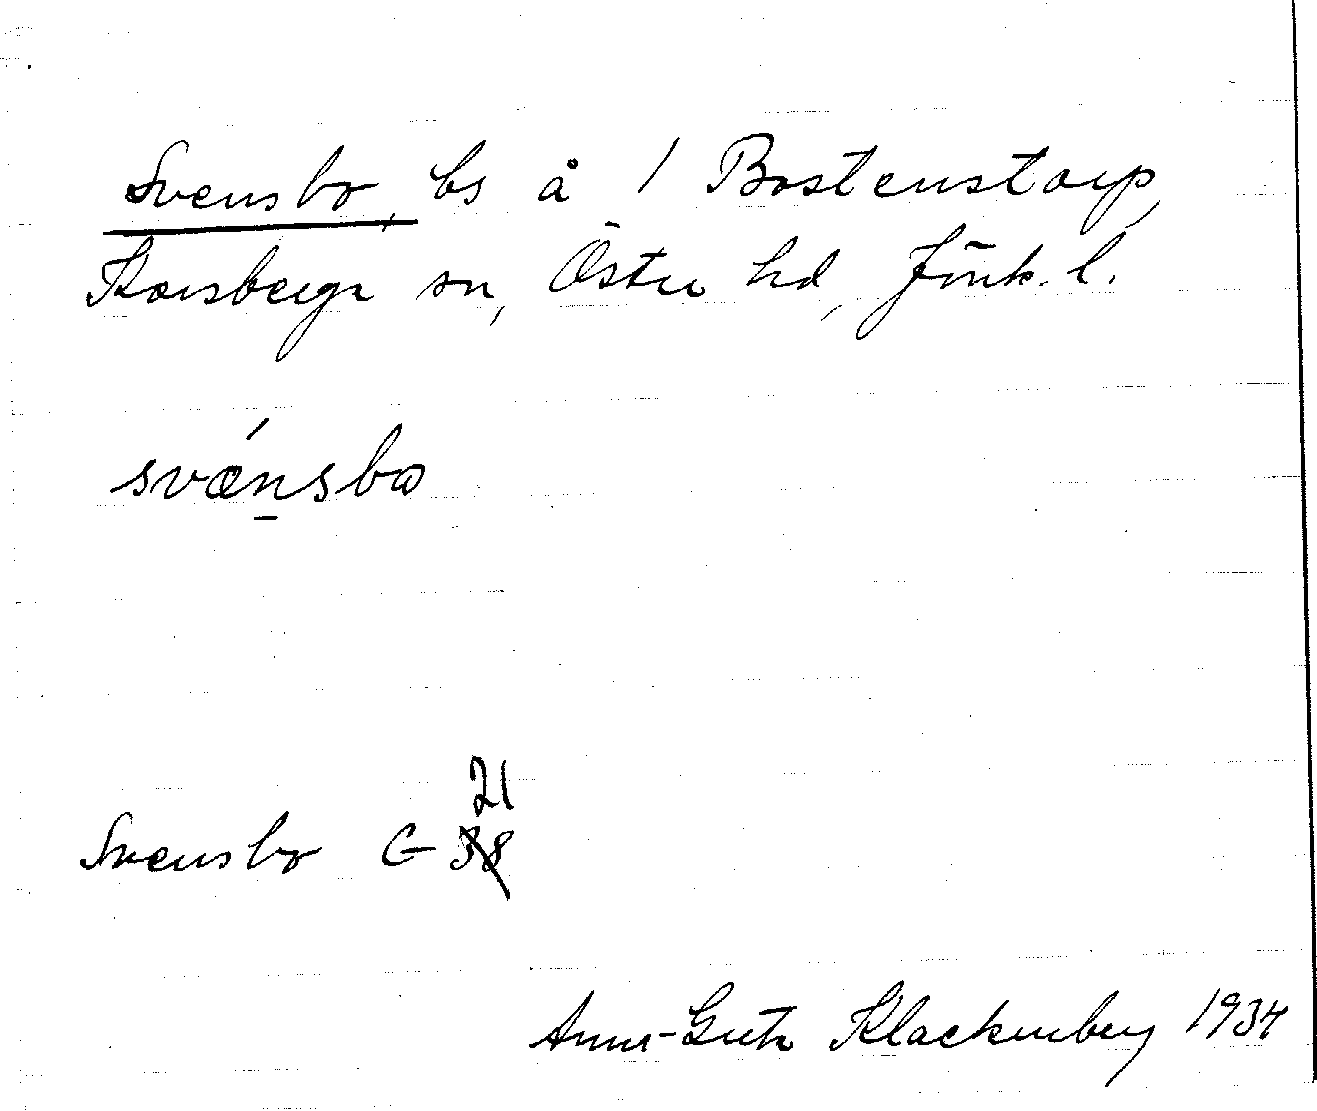 Svensbo, bs å 1 Bostenstorp,
Korsberga sn, Östra hd, Jönk. l.
svǽn̠sbω
21
Svensbo G 38
Anna-Greta Klackenberg 1934